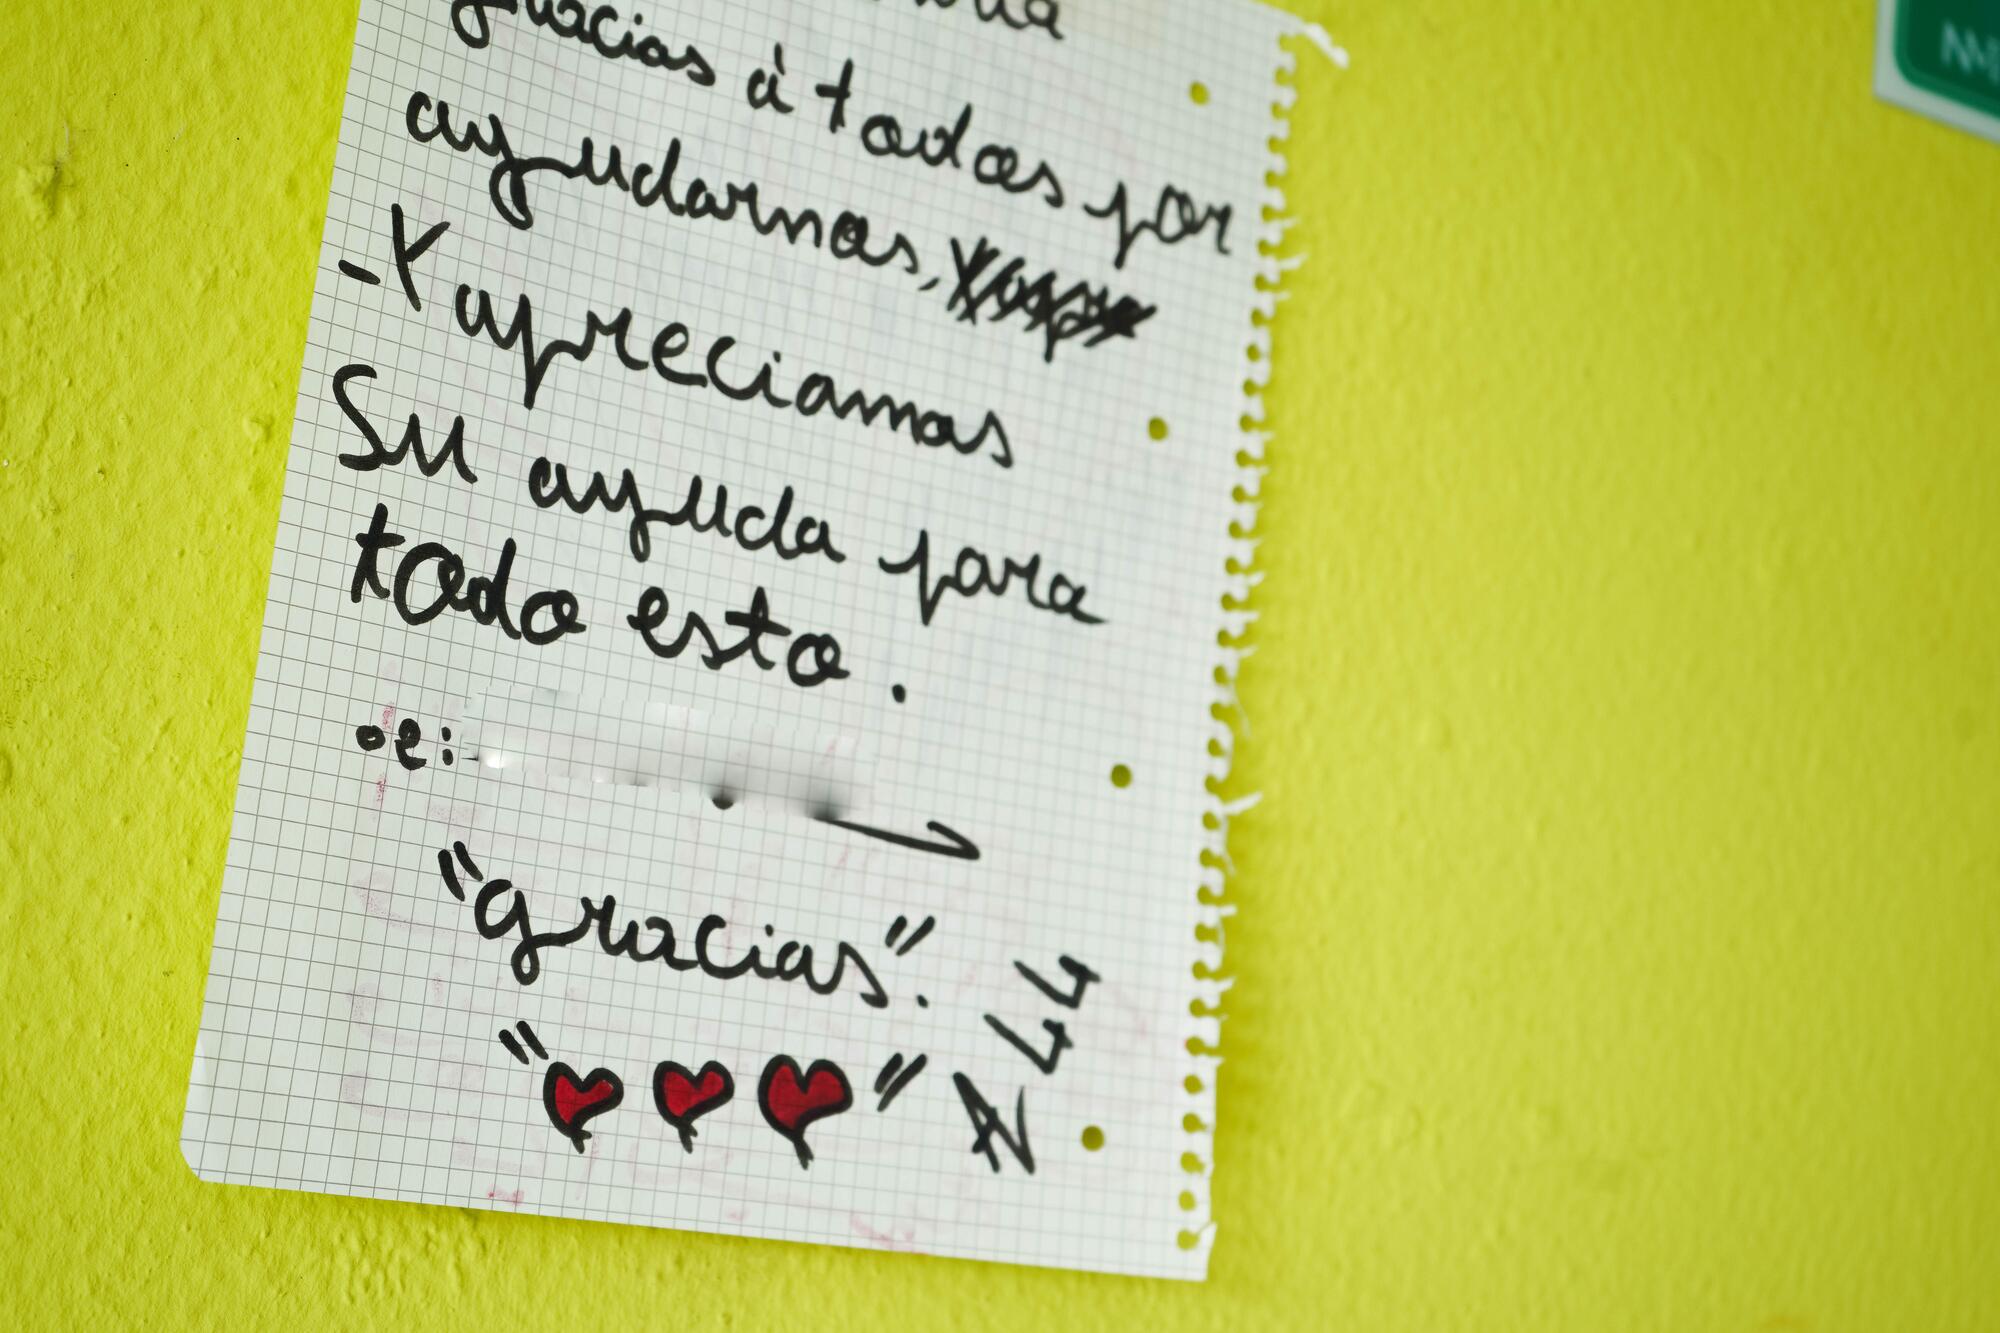 gracias à todos por
ayudarnos,
-Y apreciamos
Su ayuda para
todo esto.
•e:
"gracias".
"❤❤❤"